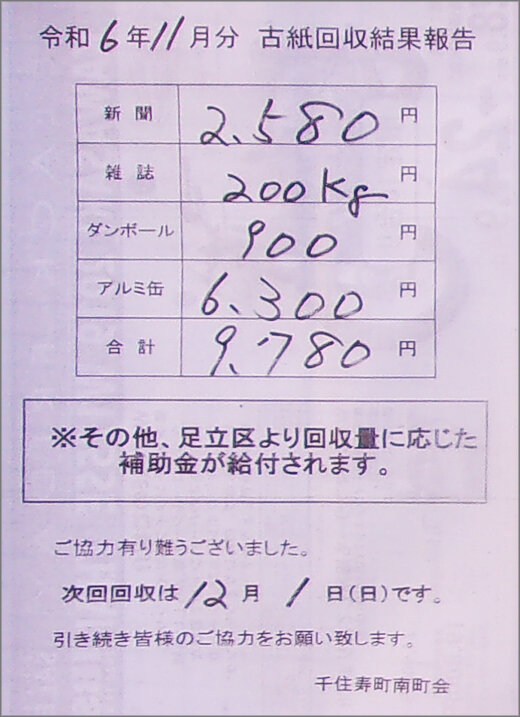 令和6年11月分 古紙回収結果報告
新聞 2.580 円
雑誌 200Kg 円
ダンボール 900 円
アルミ缶 6.300 円
合計 9.780 円
※その他、足立区より回収量に応じた
補助金が給付されます。
ご協力有り難うございました。
次回回収は12月1日(日)です。
引き続き皆様のご協力をお願い致します。
千住寿町南町会